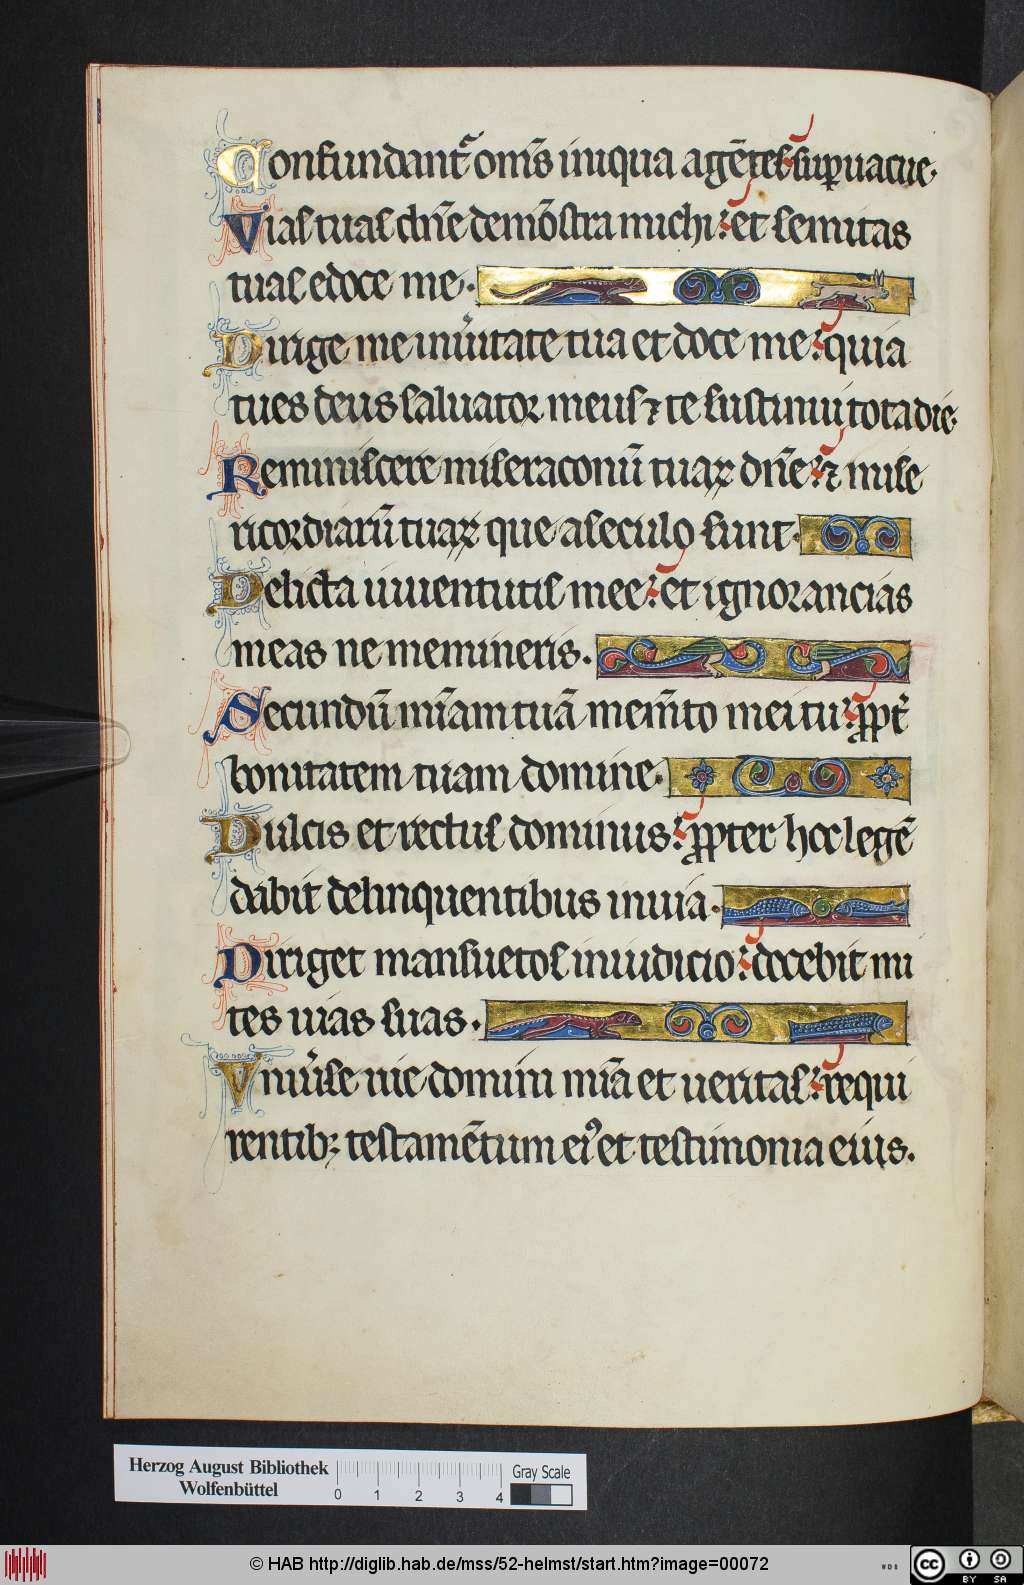 Confundant᷑ om̄s iniqua agētes sup̲uacue.
Vias tuas dn̄e demōstra michi: et semitas
tuas edoce me.
Dirige me in ũitate tua et doce me: quia
tu es deus saluator meus ⁊ te sustinui tota die.
Reminiscere miseraconū tuaꝝ dn̄e: ⁊ mise
ricordiarū tuaꝝ que a seculo sunt.
Delicta iuuentutis mee: et ignorancias
meas ne memineris.
Secundū mīam tuā mem̄to mei tu: ꝓpt̓
bonitatem tuam domine.
Dulcis et rectus dominus: ꝓpter hoc legē
dabit delinquentibus in uia.
Diriget mansuetos in iudicio: docebit mi
tes uias suas.
Vniũse uie domini mīa et ueritas: requi
rentibꝫ testamētum eiꝰ et testimonia eius.
Herzog August Bibliothek
Wolfenbüttel
0 1 2 3 4
Gray Scale
© HAB http://diglib.hab.de/mss/52-helmst/start.htm?image=00072
WDB
cc BY SA